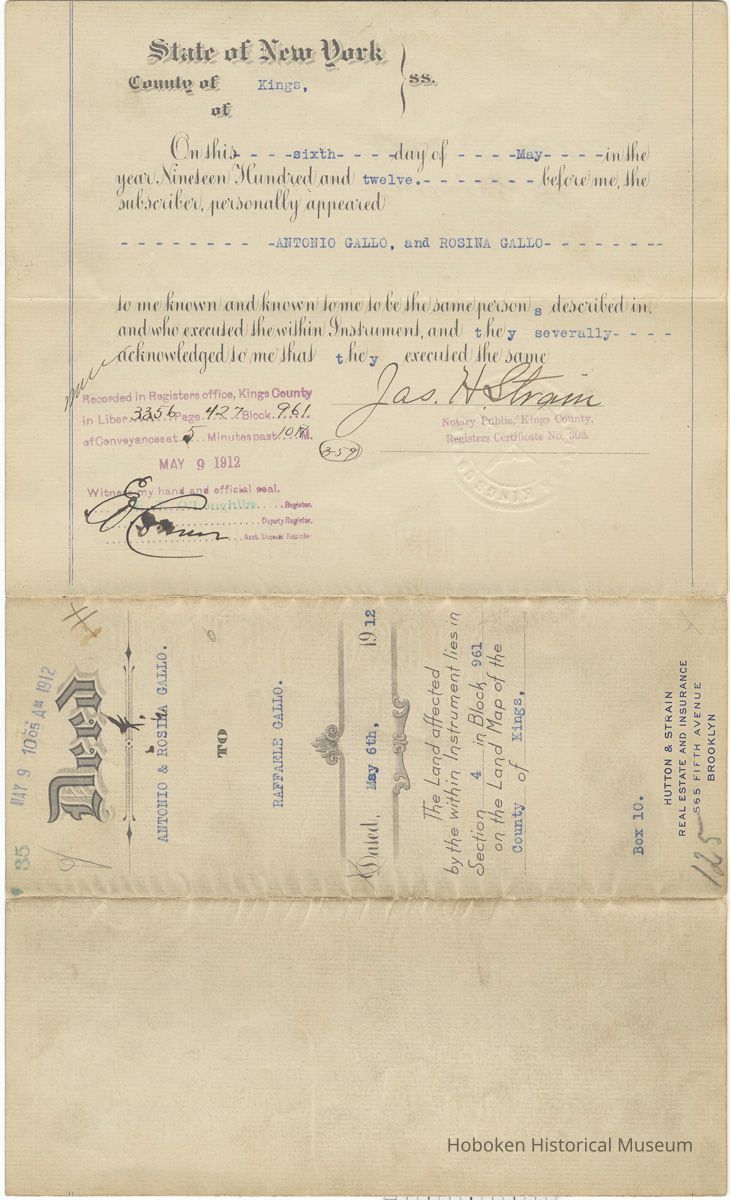 State of New York
County of Kings, ss.
of
On this - - - -sixth- - - -day of - - - -May- - - -in the
year Nineteen Hundred and twelve.- - - - - - - before me, the
subscriber, personally appeared
- - - - - - - - -ANTONIO GALLO, and ROSINA GALLO- - - - - - - -
to me known and known to me to be the same person s described in,
and who executed the within Instrument, and they severally- - - -
acknowledged to me that they executed the same
Jas. H. Strain
Notary Public, Kings County,
Registers Certificate No. 303.
359
Recorded in Registers office, Kings County
in Liber 3356 Page 427 Block 961
of Conveyances at 5 Minutes past 10 A M.
MAY 9 1912
Witness my hand and official seal.
O'Loughlin Register.
Deputy Register.
Asst. Deputy Register
35
MAY 9 1005 AM 1912
Deed
ANTONIO & ROSINA GALLO.
TO
RAFFAELE GALLO.
Dated, May 6th, 1912
The Land affected
by the within Instrument lies in
Section 4 in Block 961
on the Land Map of the
County of Kings,
Box 10.
HUTTON & STRAIN
REAL ESTATE AND INSURANCE
565 FIFTH AVENUE
BROOKLYN
125
Hoboken Historical Museum